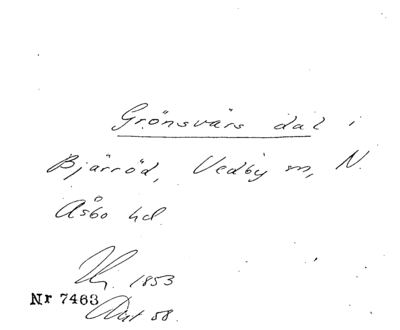 Grönsvärs dal i
Bjärröd, Vedby sn, N.
Åsbo hd
1853
Nr 7463
58.